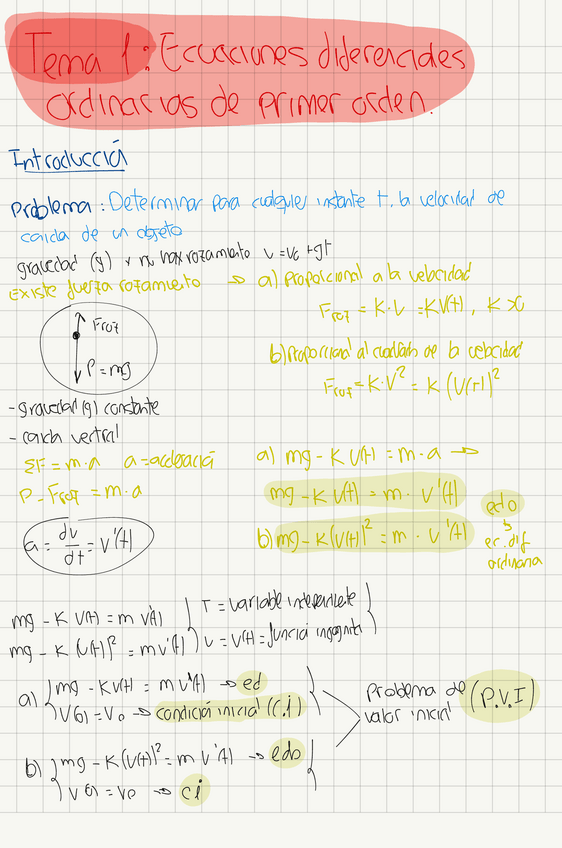 Tema 1: Ecuaciones diferenciales
ordinarias de primer orden.
Introducció
Problema: Determinar para cualquier instante t, la velocidad de
caida de un objeto
gravedad (g) y no hay rozamiento v = v0 + gt
Existe fuerza rozamiento → a) Proporcional a la velocidad
Froz = K·v = KV(t), K>0
b) Proporcional al cuadrado de la velocidad
Froz = K·V² = K (V(t))²
Froz
P = mg
- gravedad (g) constante
- caida vertical
ΣF = m·a a = aceleració
P - Froz = m·a
a = dv/dt = V'(t)
a) mg - K V(t) = m·a →
mg - K V(t) = m · V'(t)
b) mg - K(V(t))² = m · V'(t)
edo
ec. dif
ordinaria
mg - K V(t) = m V'(t)
mg - K (V(t))² = m V'(t)
T = variable independiente
V = V(t) = funció incognita
a) mg - KV(t) = m V'(t) → ed
V(0) = V0 → condició inicial (c.i)
Problema de
valor inicial (P.V.I)
b) mg - K(V(t))² = m V'(t) → edo
V(0) = V0 → ci